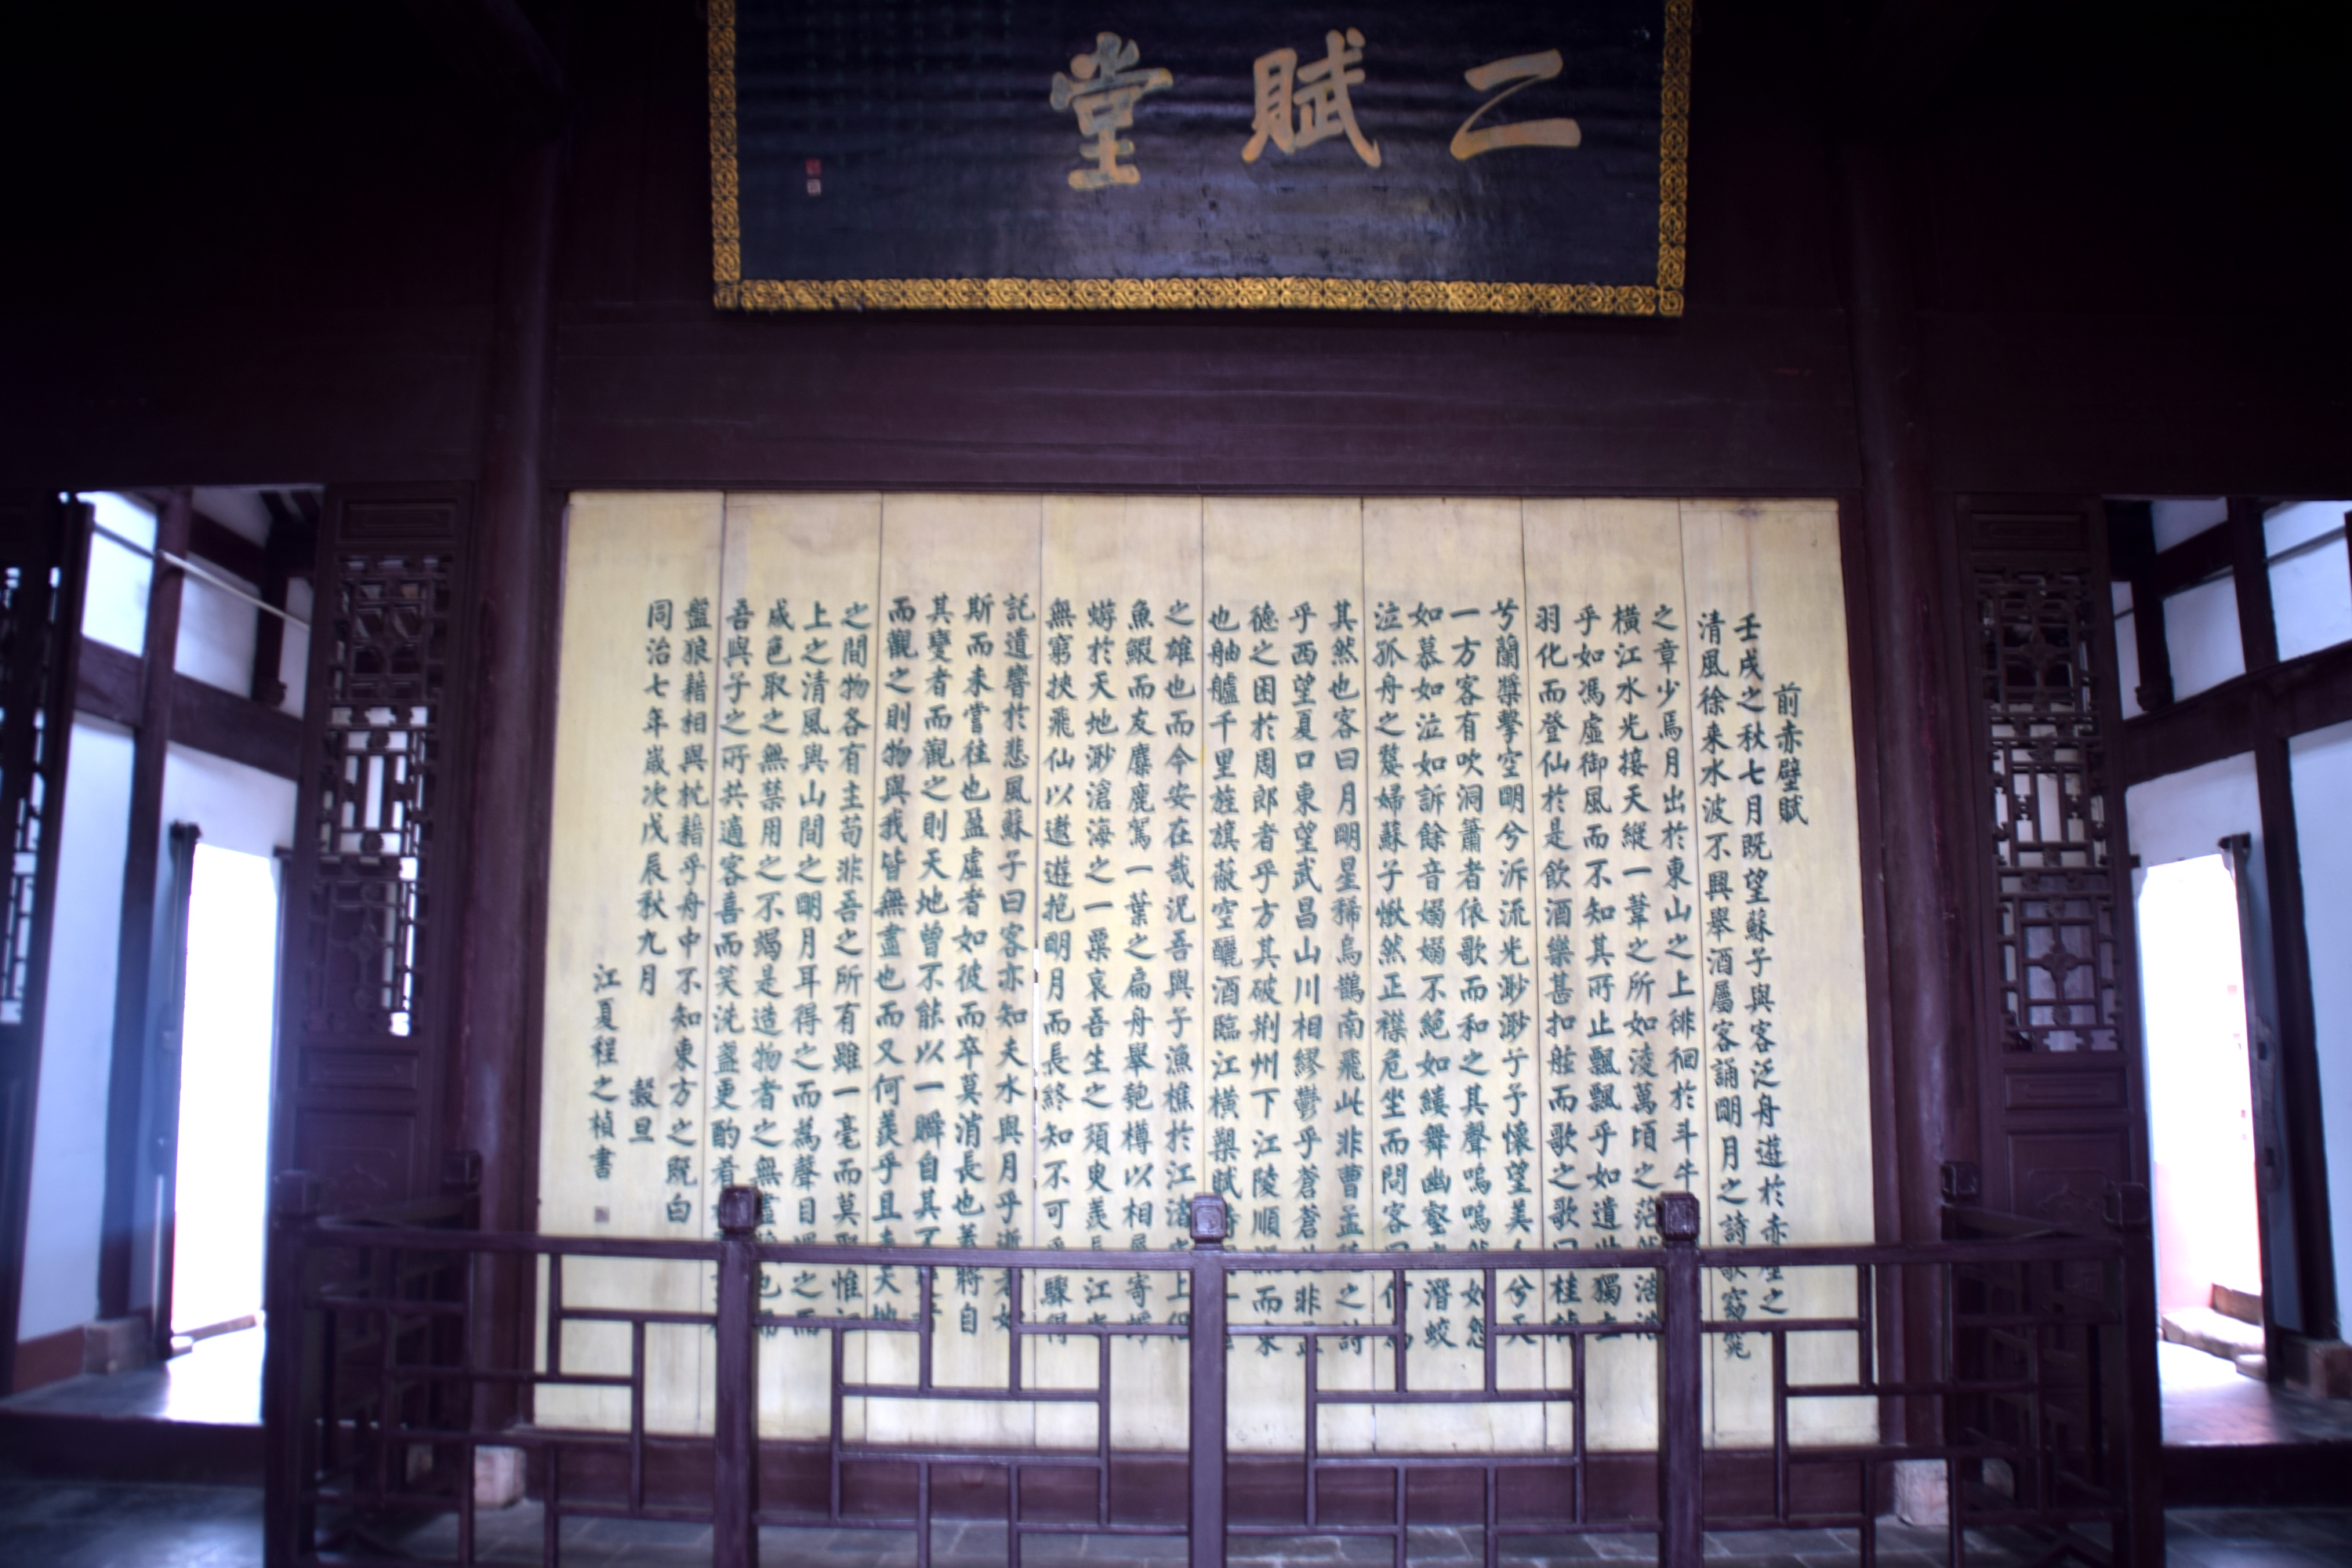 二賦堂
前赤壁賦
壬戌之秋七月既望蘇子與客泛舟遊於赤壁之
清風徐来水波不興舉酒屬客誦明月之詩歌窈窕
之章少焉月出於東山之上徘徊於斗牛
橫江水光接天縱一葦之所如淩萬頃之茫然浩浩
乎如馮虛御風而不知其所止飄飄乎如遺世獨立
羽化而登仙於是飲酒樂甚扣舷而歌之歌曰桂棹
兮蘭槳擊空明兮泝流光渺渺兮予懷望美人兮天
一方客有吹洞簫者依歌而和之其聲嗚嗚然如怨
如慕如泣如訴餘音嫋嫋不絕如縷舞幽壑之潛蛟
泣孤舟之嫠婦蘇子愀然正襟危坐而問客曰何為
其然也客曰月明星稀烏鵲南飛此非曹孟德之詩
乎西望夏口東望武昌山川相繆鬱乎蒼蒼此非孟
德之困於周郎者乎方其破荆州下江陵順流而東
也舳艫千里旌旗蔽空釃酒臨江橫槊賦詩固一世
之雄也而今安在哉況吾與子漁樵於江渚之上侶
魚鰕而友麋鹿駕一葉之扁舟舉匏樽以相屬寄蜉
蝣於天地渺滄海之一粟哀吾生之須臾羨長江之
無窮挾飛仙以遨遊抱明月而長終知不可乎驟得
託遺響於悲風蘇子曰客亦知夫水與月乎逝者如
斯而未嘗往也盈虛者如彼而卒莫消長也蓋將自
其變者而觀之則天地曾不能以一瞬自其不變者
而觀之則物與我皆無盡也而又何羨乎且夫天地
之間物各有主苟非吾之所有雖一毫而莫取惟江
上之清風與山間之明月耳得之而為聲目遇之而
成色取之無禁用之不竭是造物者之無盡藏也而
吾與子之所共適客喜而笑洗盞更酌肴
盤狼藉相與枕藉乎舟中不知東方之既白
同治七年歲次戊辰秋九月
穀旦
江夏程之楨書